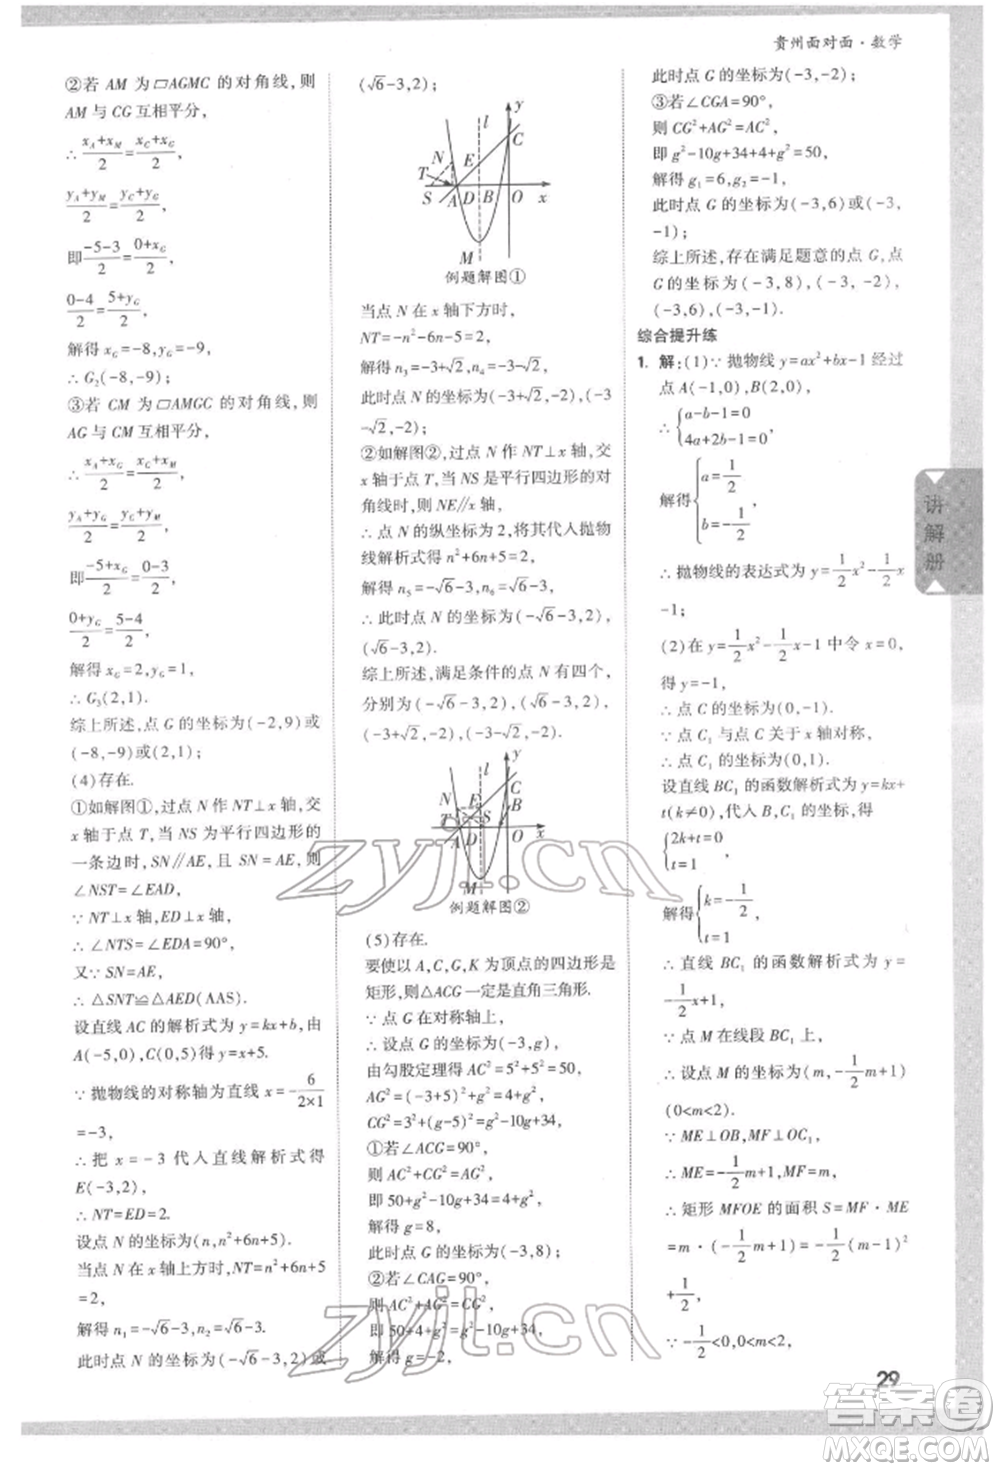 贵州面对面·数学
②若 AM 为▱AGMC 的对角线,则
AM 与 CG 互相平分,
∴ (x_A+x_M)/2=(x_C+x_G)/2,
(y_A+y_M)/2=(y_C+y_G)/2,
即(-5-3)/2=(0+x_G)/2,
(0-4)/2=(5+y_G)/2,
解得 x_G=-8,y_G=-9,
∴ G₂(-8,-9);
③若 CM 为▱AMGC 的对角线,则
AG 与 CM 互相平分,
∴ (x_A+x_G)/2=(x_C+x_M)/2,
(y_A+y_G)/2=(y_C+y_M)/2,
即(-5+x_G)/2=(0-3)/2,
(0+y_G)/2=(5-4)/2,
解得 x_G=2,y_G=1,
∴ G₃(2,1).
综上所述,点 G 的坐标为(-2,9)或
(-8,-9)或(2,1);
(4)存在.
①如解图①,过点 N 作 NT⊥x 轴,交
x 轴于点 T,当 SN 为平行四边形的
一条边时,SN∥AE,SN=AE,
∴ ∠NST=∠EAD,
∵ NT⊥x 轴,ED⊥x 轴,
∴ ∠NTS=∠EDA=90°,
又∵ SN=AE,
∴ △SNT≌△AED(AAS).
设直线 AC 的解析式为 y=kx+b,由
A(-5,0),C(0,5)得 y=x+5.
∵ 抛物线的对称轴为直线 x=-6/(2×1)
=-3,
∴ 把 x=-3 代入直线解析式得
E(-3,2),
∴ NT=ED=2.
设点 N 的坐标为(n,n²+6n+5);
当点 N 在 x 轴上方时,NT=n²+6n+5
=2,
解得 n₁=-√6-3,n₂=√6-3.
此时点 N 的坐标为(-√6-3,2)或
(√6-3,2);
y
l
C
N
E
T
S A D B O x
M
例题解图①
当点 N 在 x 轴下方时,
NT=-n²-6n-5=2,
解得 n₃=-3+√2,n₄=-3-√2.
此时点 N 的坐标为(-3+√2,-2),(-3
-√2,-2),
②如解图②,过点 N 作 NT⊥x 轴,
交 x 轴于点 T,当 NS 是平行四边形的
对角线时,则 NE∥x 轴,
∴ 点 N 的纵坐标为 2,将其代入抛物
线解析式得 n²+6n+5=2,
解得 n₅=-√6-3,n₆=√6-3,
∴ 此时点 N 的坐标为(-√6-3,2),
(√6-3,2).
综上所述,满足条件的点 N 的坐标
分别为(-√6-3,2),(√6-3,2),
(-3+√2,-2),(-3-√2,-2).
y
l
C
N E
S
T
A D O x
M
例题解图②
(5)存在.
要使以 A,C,G,K 为顶点的四边形是
矩形,则△ACG 一定是直角三角形.
∵ 点 G 在对称轴上,
∴ 设点 G 的坐标为(-3,g),
由勾股定理得 AC²=5²+5²=50,
AG²=(-3+5)²+g²=4+g²,
CG²=3²+(g-5)²=g²-10g+34,
①若∠ACG=90°,
则 AC²+CG²=AG²,
即 50+g²-10g+34=4+g²,
解得 g=8,
此时点 G 的坐标为(-3,8);
②若∠CAG=90°,
则 AC²+AG²=CG²,
即 50+4+g²=g²-10g+34,
解得 g=-2,
此时点 G 的坐标为(-3,-2);
③若∠CGA=90°,
则 CG²+AG²=AC²,
即 g²-10g+34+4+g²=50,
解得 g₁=6,g₂=-1,
此时点 G 的坐标为(-3,6)或(-3,
-1);
综上所述,存在满足题意的点 G,点
G 的坐标为(-3,8),(-3,-2),
(-3,6),(-3,-1).
综合提升练
1. 解:(1)∵ 抛物线 y=ax²+bx-1 经过
点 A(-1,0),B(2,0),
∴ {a-b-1=0
4a+2b-1=0,
解得{a=1/2
b=-1/2,
∴ 抛物线的表达式为 y=1/2x²-1/2x-
1;
(2)在 y=1/2x²-1/2x-1 中令 x=0,
得 y=-1,
∴ 点 C 的坐标为(0,-1).
∵ 点 C₁ 与点 C 关于 x 轴对称,
∴ 点 C₁ 的坐标为(0,1).
设直线 BC₁ 的函数解析式为 y=kx+
t(k≠0),代入点 B,C₁ 的坐标,得
{2k+t=0
t=1,
解得{k=-1/2
t=1,
∴ 直线 BC₁ 的函数解析式为 y=
-1/2x+1,
∵ 点 M 在线段 BC₁ 上,
∴ 设点 M 的坐标为(m,-1/2m+1)
(0<m<2).
∵ ME⊥OB,MF⊥OC₁,
∴ ME=-1/2m+1,MF=m,
∴ 矩形 MFOE 的面积 S=MF·ME
=m·(-1/2m+1)=-1/2m²+m,
∵ -1/2<0,0<m<2,
讲解册
29
zyjl.cn
zyjl.cn
答案圈
MXQE.COM